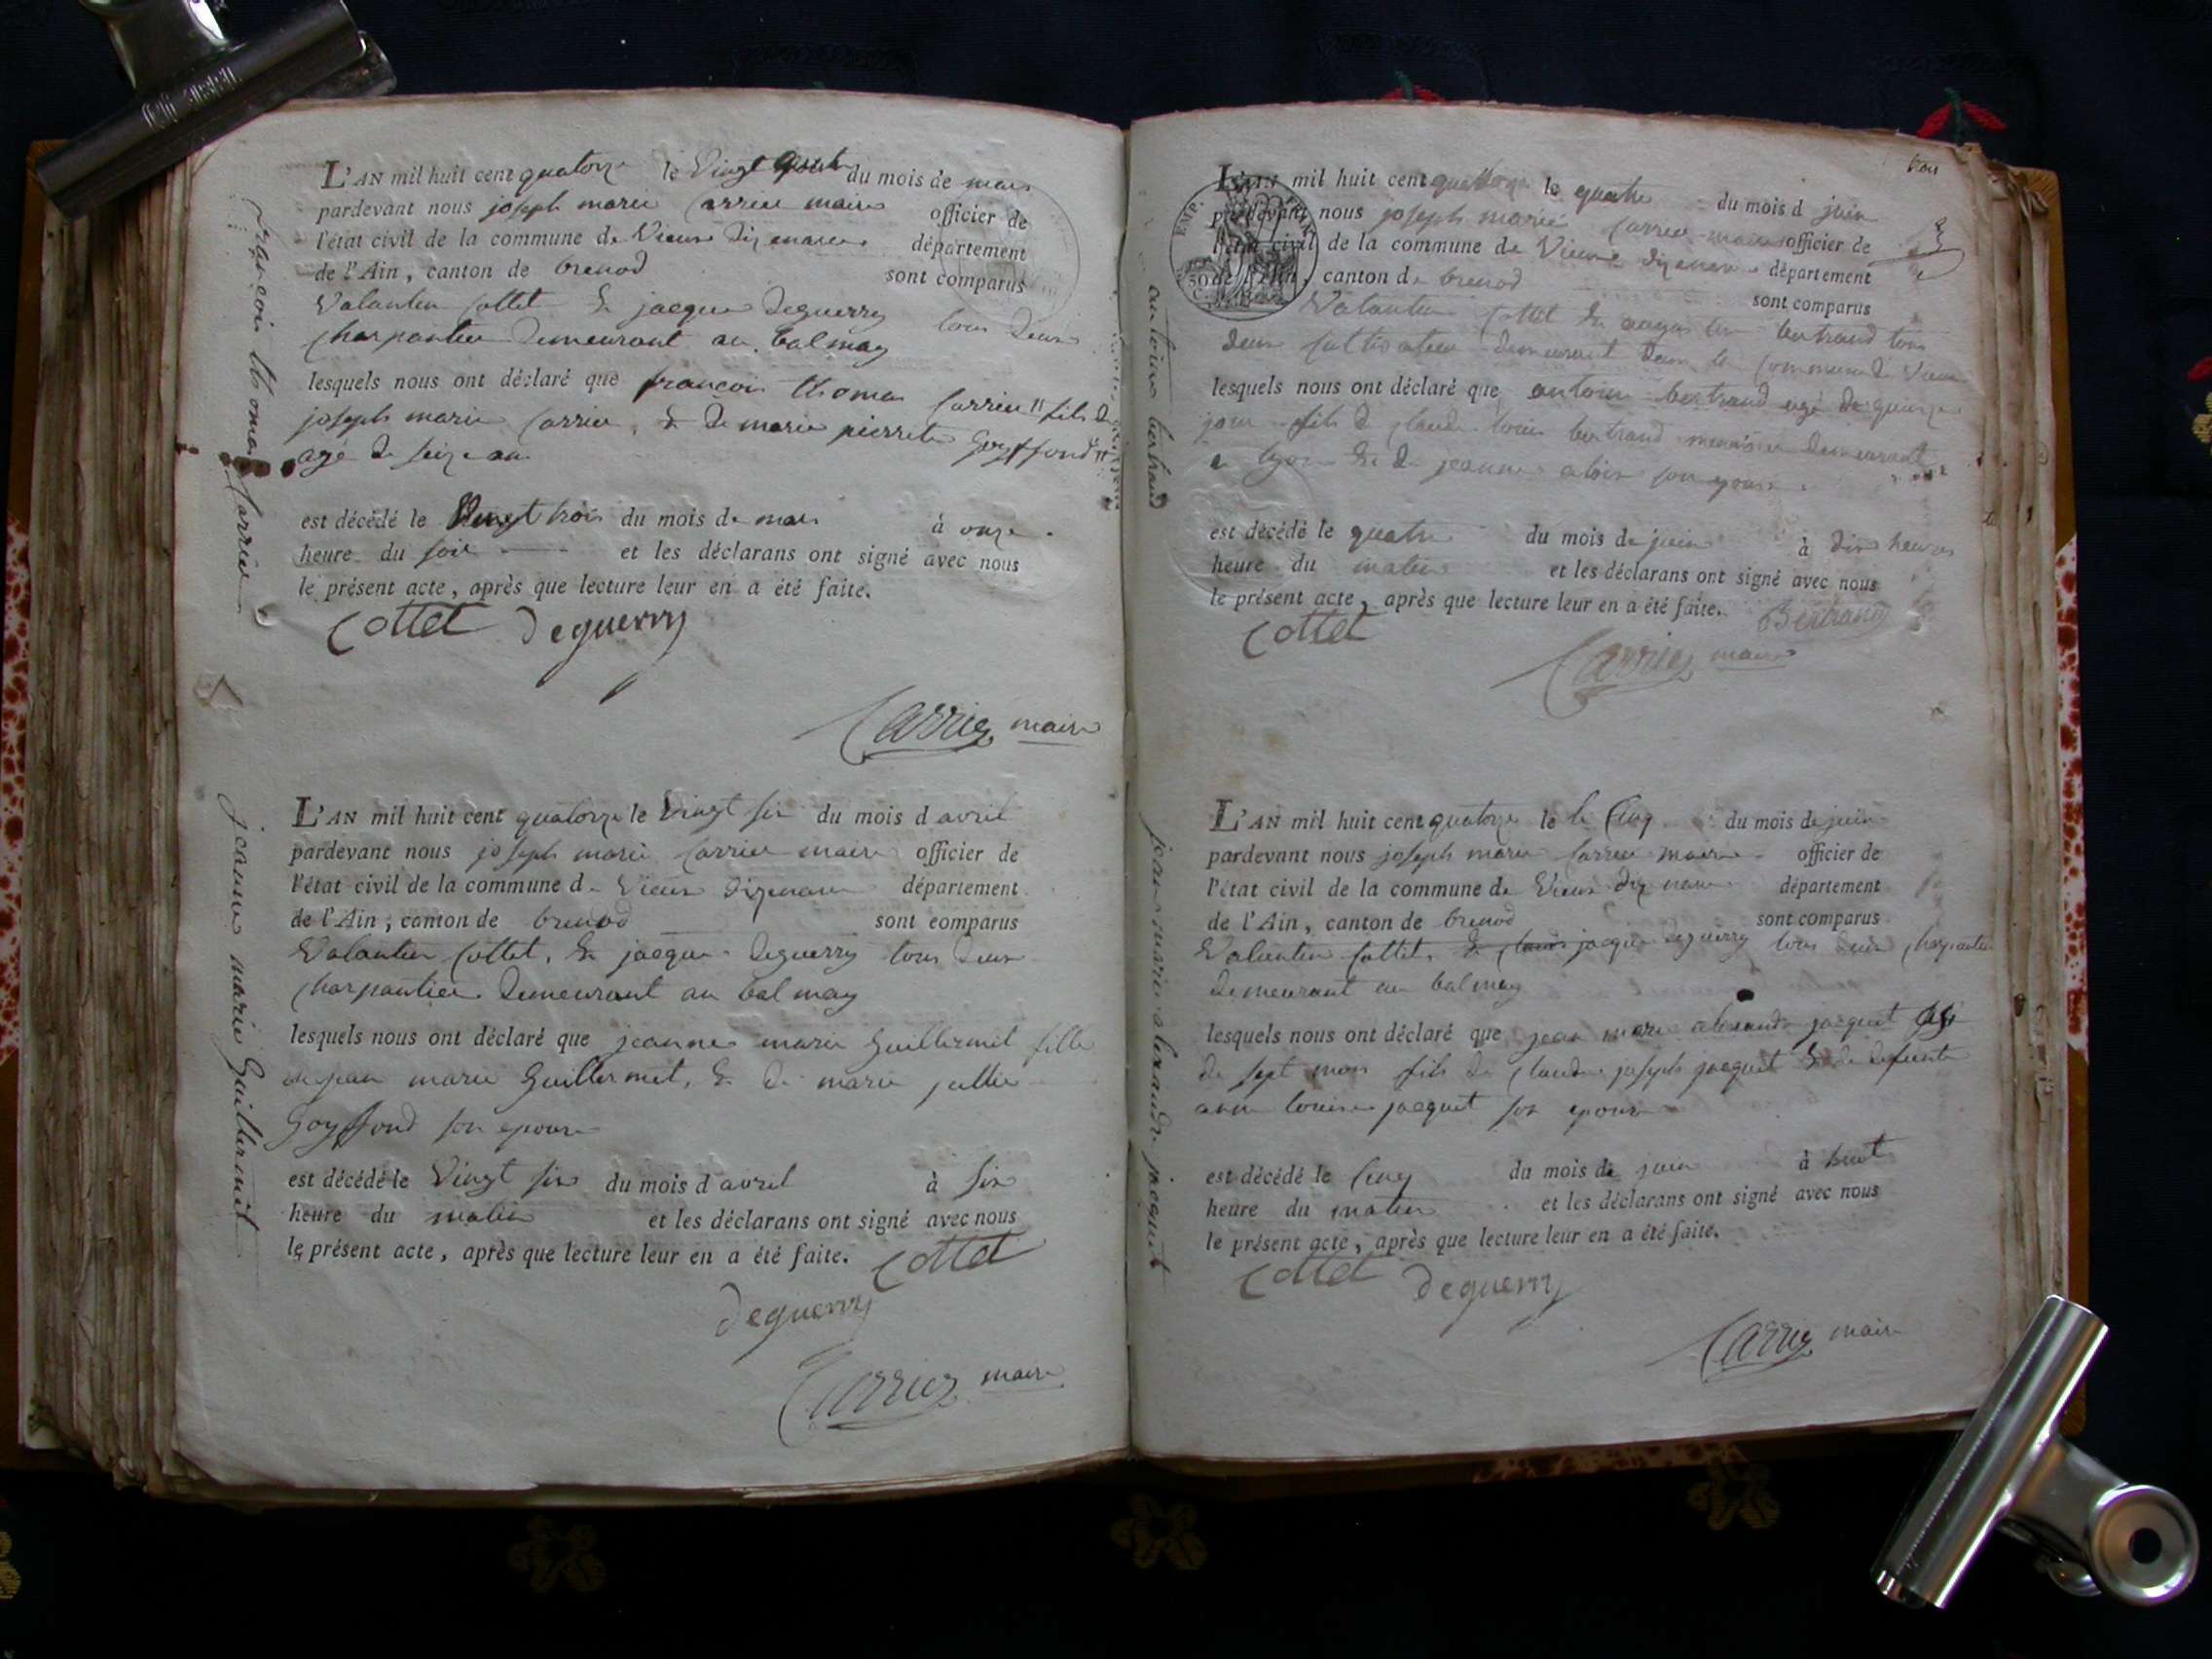 françois thomas Carrier
L'AN mil huit cent quatorze le Vingt quatre du mois de mars
pardevant nous joseph marie Carrier maire officier de
l'état civil de la commune de Vieux Dizenave département
de l'Ain, canton de brenod sont comparus
Valantin Cottet & jacque Deguerry tous Deux
Charpantier Demeurant au balmay
lesquels nous ont déclaré que françois thomas Carrier fils de
joseph marie Carrier, & De marie pierrette Goyffond
age De seize ans
est décédé le Vingt trois du mois de mars à onze
heure du soir et les déclarans ont signé avec nous
le présent acte, après que lecture leur en a été faite.
Cottet Deguerry
Carrier maire
jeanne marie Guillermet
L'AN mil huit cent quatorze le Vingt six du mois d avril
pardevant nous joseph marie Carrier maire officier de
l'état civil de la commune de Vieux Dizenave département
de l'Ain, canton de brenod sont comparus
Valantin Cottet, & jacque Deguerry tous Deux
Charpantier Demeurant au balmay
lesquels nous ont déclaré que jeanne marie Guillermet fille
de jean marie Guillermet, & De marie jullie
Goyffond son epouse
est décédé le Vingt six du mois d avril à six
heure du matin et les déclarans ont signé avec nous
le présent acte, après que lecture leur en a été faite. Cottet
Deguerry
Carrier maire
antoine bertrand
L'AN mil huit cent quatorze le quatre du mois d juin
pardevant nous joseph marie Carrier maire officier de
l'état civil de la commune de Vieux Dizenave département
de l'Ain, canton de brenod sont comparus
Valantin Cottet & bertrand tous
deux Cultivateur demeurant dans la Commune de Vieux
lesquels nous ont déclaré que antoine bertrand agé de quinze
jour fils de Claude louis bertrand demeurant
a lyon & de jeanne son epouse
est décédé le quatre du mois de juin à dix heures
heure du matin et les déclarans ont signé avec nous
le présent acte, après que lecture leur en a été faite. Bertrand
Cottet
Carrier maire
jean marie alexandre jacquet
L'AN mil huit cent quatorze le le Cinq du mois de juin
pardevant nous joseph marie Carrier maire officier de
l'état civil de la commune de Vieux Dizenave département
de l'Ain, canton de brenod sont comparus
Valantin Cottet, & jacque Deguerry tous deux Charpantier
Demeurant au balmay
lesquels nous ont déclaré que jean marie alexandre jacquet agé
de sept mois fils de Claude joseph jacquet & de defunte
anne louise jacquet son epouse
est décédé le Cinq du mois de juin à huit
heure du matin et les déclarans ont signé avec nous
le présent acte, après que lecture leur en a été faite.
Cottet Deguerry
Carrier maire